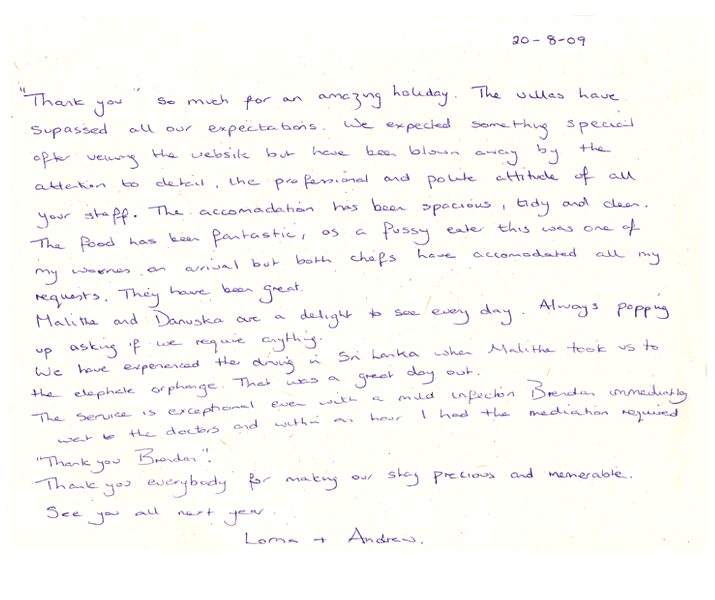 20-8-09
"Thank you" so much for an amazing holiday. The villas have
supassed all our expectations. We expected something special
after veiwing the website but have been blown away by the
attention to detail, the professional and polite attitude of all
your staff. The accomadation has been spacious, tidy and clean.
The food has been fantastic, as a fussy eater this was one of
my worries on arrival but both chefs have accomodated all my
requests. They have been great.
Malitha and Danuska are a delight to see every day. Always popping
up asking if we require anything.
We have experienced the driving in Sri Lanka when Malitha took us to
the elephate orphange. That was a great day out.
The service is exceptional even with a mild infection Brendan immediantly
went to the doctors and within an hour I had the mediation required
"Thank you Brendan".
Thank you everybody for making our stay precious and memerable.
See you all next year.
Lorna + Andrew.